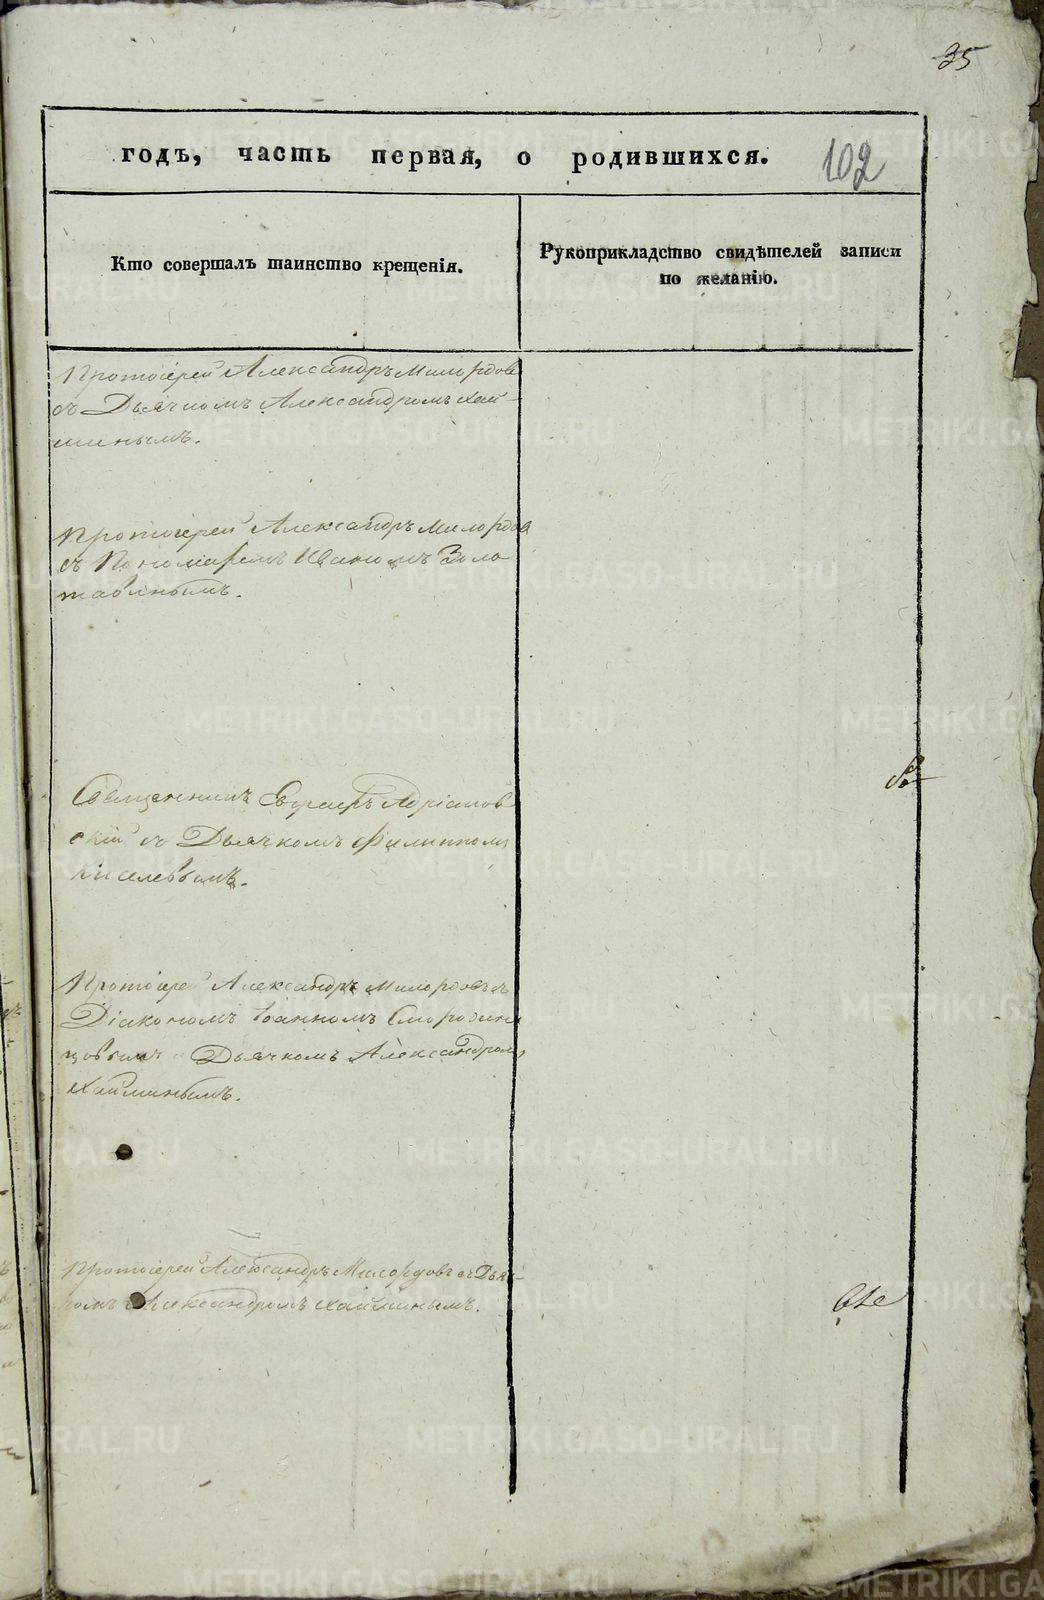 35
годъ, часть первая, о родившихся. 102
Кто совершалъ таинство крещенія.
Рукоприкладство свидѣтелей записи
по желанію.
Протоіерей Александръ Милордовъ
съ Дьячкомъ Александромъ Хай-
минымъ.
Протоіерей Александръ Милордовъ
съ Пономаремъ Иваномъ Золо
тавинымъ.
Священникъ Евграфъ Адріанов
скій съ Дьячкомъ Филиппомъ
Киселевымъ.
Протоіерей Александръ Милордовъ съ
Діакономъ Іоанномъ Смородин
цовымъ Дьячкомъ Александромъ
Хайминымъ.
Протоіерей Александръ Милордовъ съ Дьяч-
комъ Александромъ Хайминымъ.
METRIKI.GASO-URAL.RU